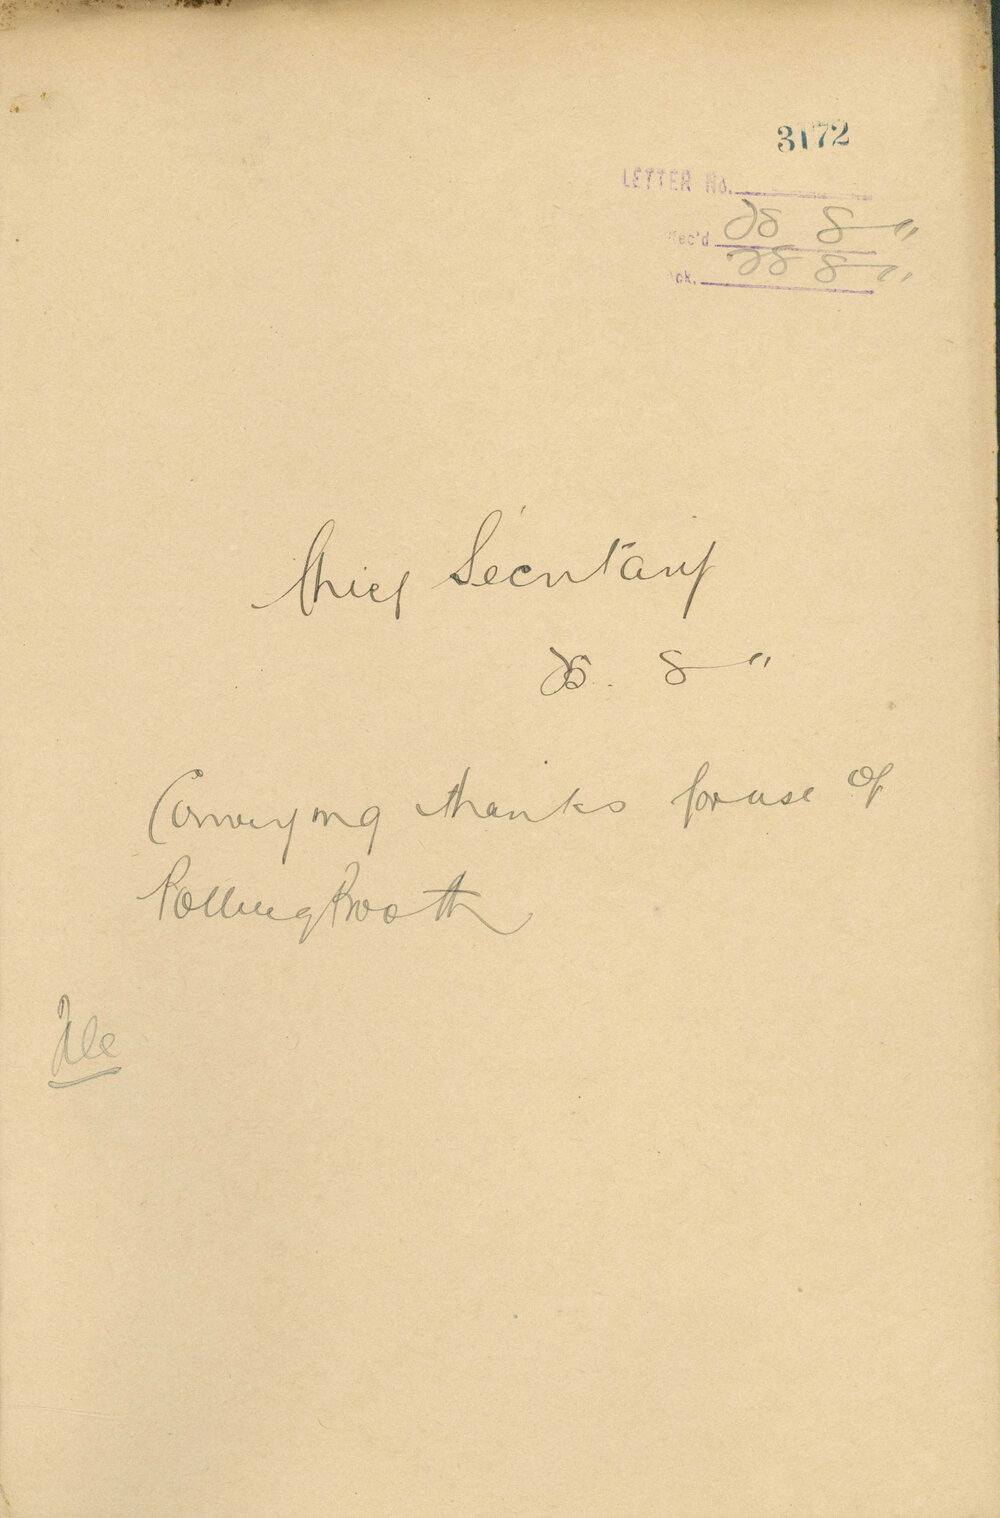 3172
LETTER No.
Rec'd 28 8 "
Ack. 28 8 "
Chief Secretary
8 "
Conveying thanks for use of
Polling Booth
File